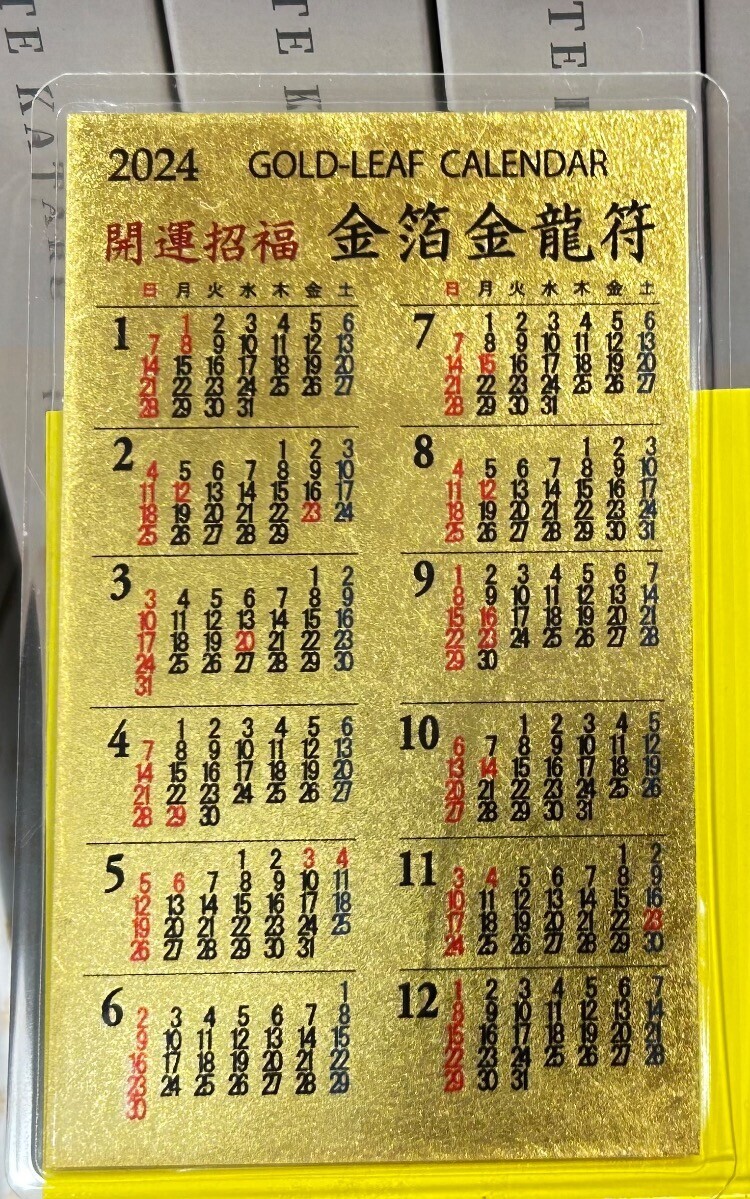 TE KATA
TE K
TE K
2024 GOLD-LEAF CALENDAR
開運招福 金箔金龍符
日 月 火 水 木 金 土
1
1 2 3 4 5 6
7 8 9 10 11 12 13
14 15 16 17 18 19 20
21 22 23 24 25 26 27
28 29 30 31
2
1 2 3
4 5 6 7 8 9 10
11 12 13 14 15 16 17
18 19 20 21 22 23 24
25 26 27 28 29
3
1 2
3 4 5 6 7 8 9
10 11 12 13 14 15 16
17 18 19 20 21 22 23
24 25 26 27 28 29 30
31
4
1 2 3 4 5 6
7 8 9 10 11 12 13
14 15 16 17 18 19 20
21 22 23 24 25 26 27
28 29 30
5
1 2 3 4
5 6 7 8 9 10 11
12 13 14 15 16 17 18
19 20 21 22 23 24 25
26 27 28 29 30 31
6
1
2 3 4 5 6 7 8
9 10 11 12 13 14 15
16 17 18 19 20 21 22
23 24 25 26 27 28 29
30
日 月 火 水 木 金 土
7
1 2 3 4 5 6
7 8 9 10 11 12 13
14 15 16 17 18 19 20
21 22 23 24 25 26 27
28 29 30 31
8
1 2 3
4 5 6 7 8 9 10
11 12 13 14 15 16 17
18 19 20 21 22 23 24
25 26 27 28 29 30 31
9
1 2 3 4 5 6 7
8 9 10 11 12 13 14
15 16 17 18 19 20 21
22 23 24 25 26 27 28
29 30
10
1 2 3 4 5
6 7 8 9 10 11 12
13 14 15 16 17 18 19
20 21 22 23 24 25 26
27 28 29 30 31
11
1 2
3 4 5 6 7 8 9
10 11 12 13 14 15 16
17 18 19 20 21 22 23
24 25 26 27 28 29 30
12
1 2 3 4 5 6 7
8 9 10 11 12 13 14
15 16 17 18 19 20 21
22 23 24 25 26 27 28
29 30 31